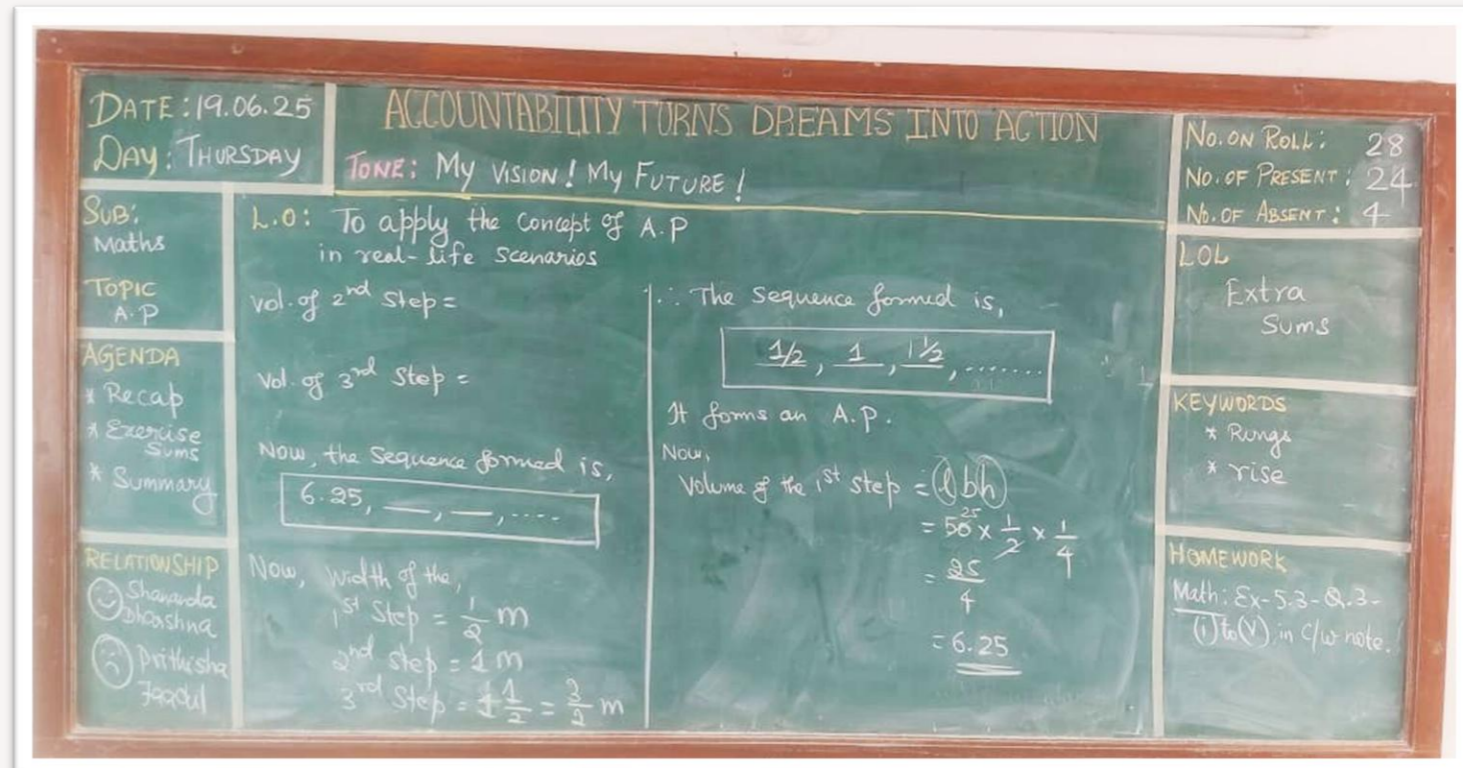 DATE: 19.06.25
DAY: THURSDAY
ACCOUNTABILITY TURNS DREAMS INTO ACTION
TONE: My VISION! My FUTURE!
No. ON ROLL: 28
No. OF PRESENT: 24
No. OF ABSENT: 4
SUB:
Maths
TOPIC
A.P
AGENDA
* Recap
* Exercise
Sums
* Summary
RELATIONSHIP
Shananda
Dharshna
Prithisha
L.O: To apply the concept of A.P
in real-life scenarios
Vol. of 2nd Step =
Vol. of 3rd Step =
Now, the Sequence formed is,
6.25, __, __, ....
Now, Width of the,
1st Step = 1/2 m
2nd step = 1 m
3rd Step = 1 1/2 = 3/2 m
∴ The Sequence formed is,
1/2, 1, 1 1/2, .......
It forms an A.P.
Now,
Volume of the 1st step = lbh
= 50 25 × 1/2 × 1/4
= 25/4
= 6.25
LOL
Extra
Sums
KEYWORDS
* Rungs
* rise
HOMEWORK
Math: Ex-5.3-Q.3-
(i) to (V), in C/w note.